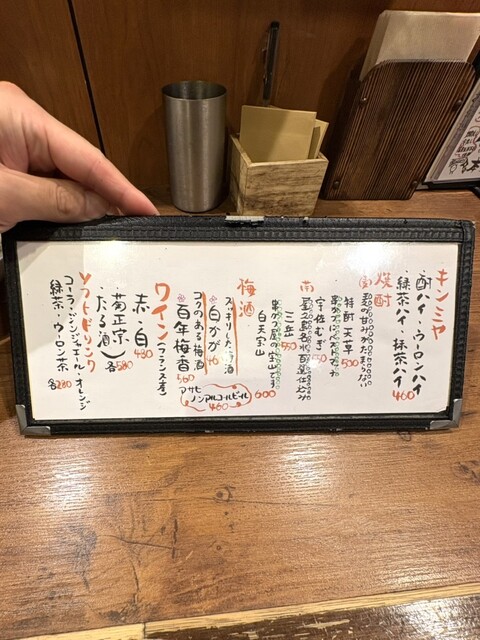 キンミヤ
酎ハイ・ウーロンハイ
緑茶ハイ・抹茶ハイ
460
焼酎
麦の甘みがたまらない
特酎 天草
500
宇佐むぎ
550
三岳
550
白天宝山
600
梅酒
スッキリした梅酒
白かが
コクのある梅酒
百年梅香
560
アサヒ
ノンアルコールビール
460
ワイン(フランス産)
赤・白
430
菊正宗
(たる酒)
各580
ソフトドリンク
コーラ・ジンジャエール・オレンジ
緑茶・ウーロン茶
各280